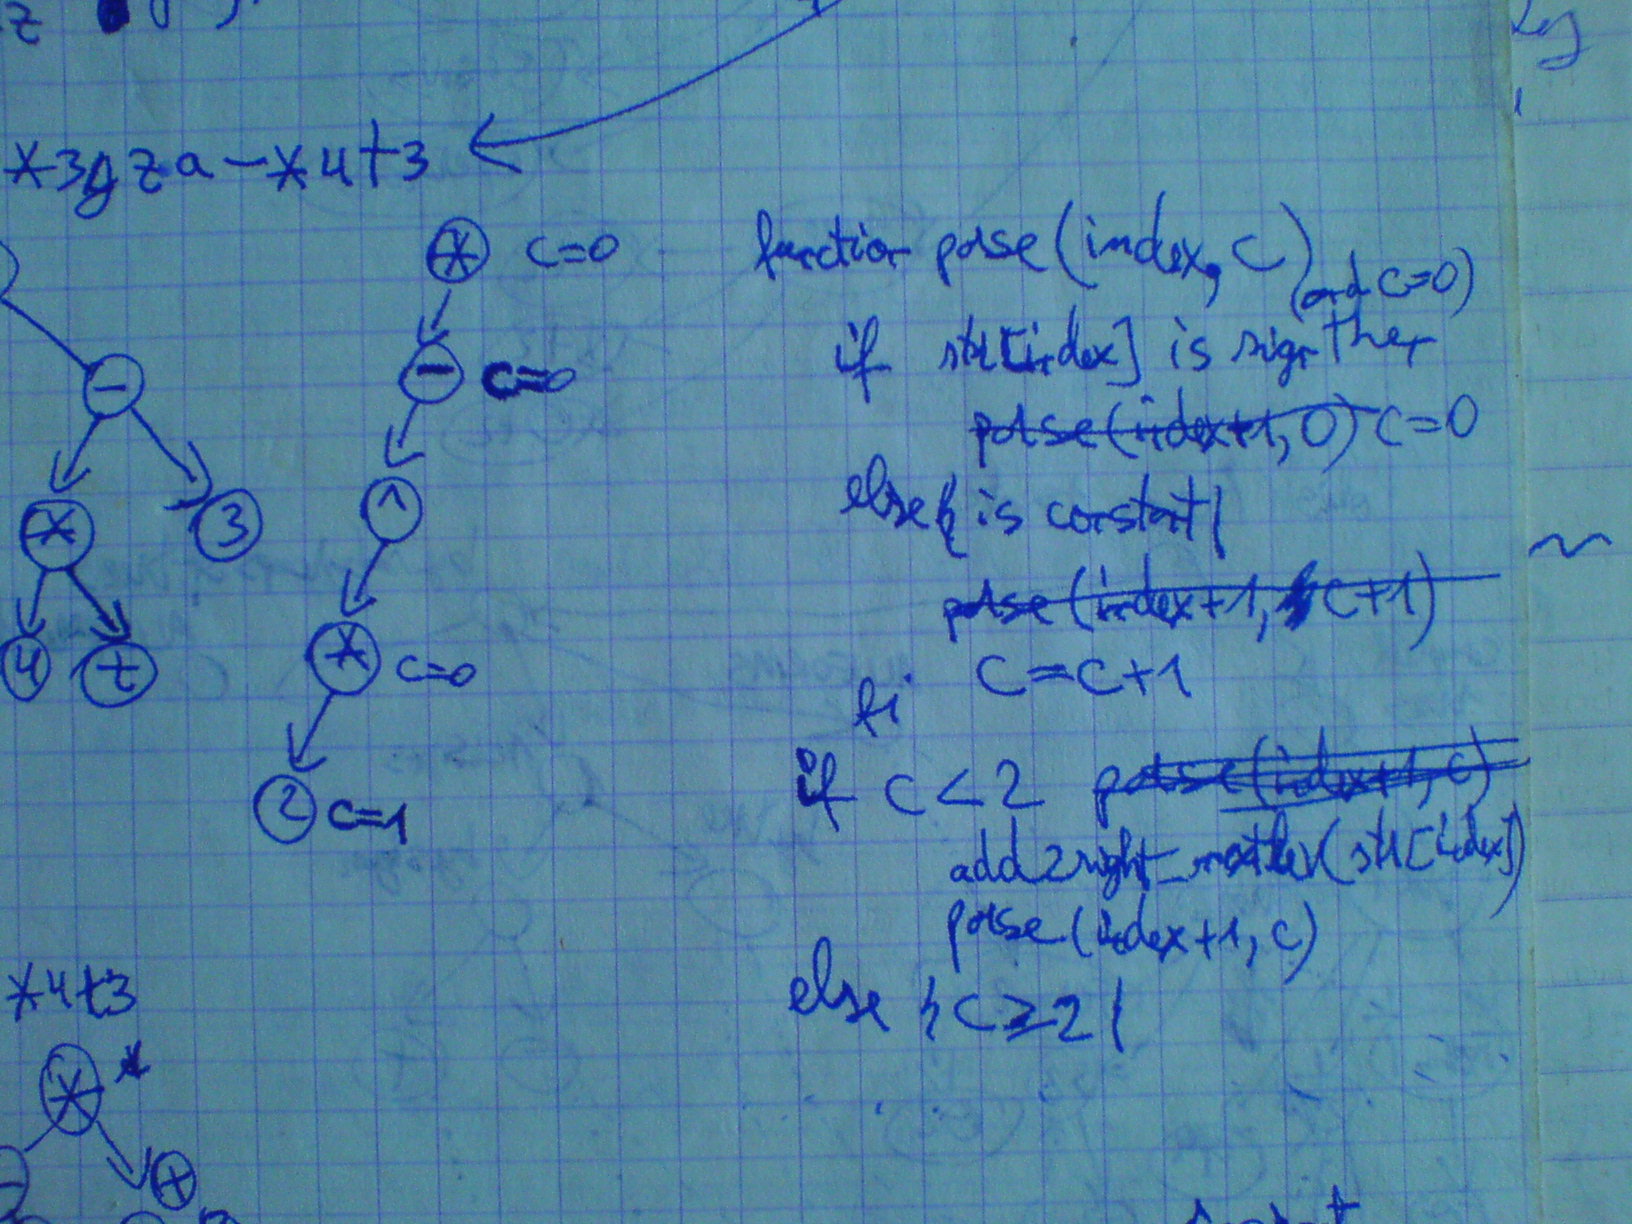 z
*3gza-*4t3
* c=0
- c=0
^
* c=0
2 c=1
-
* 3
4 t
function parse(index, c)
(and c=0)
if str[index] is sign then
parse(index+1, 0) c=0
else { is constant }
parse(index+1, c+1)
c=c+1
fi
if c<2 parse(index+1, c)
add2right_mother(str[index])
parse(index+1, c)
else { c≥2 }
*4t3
*
-
+